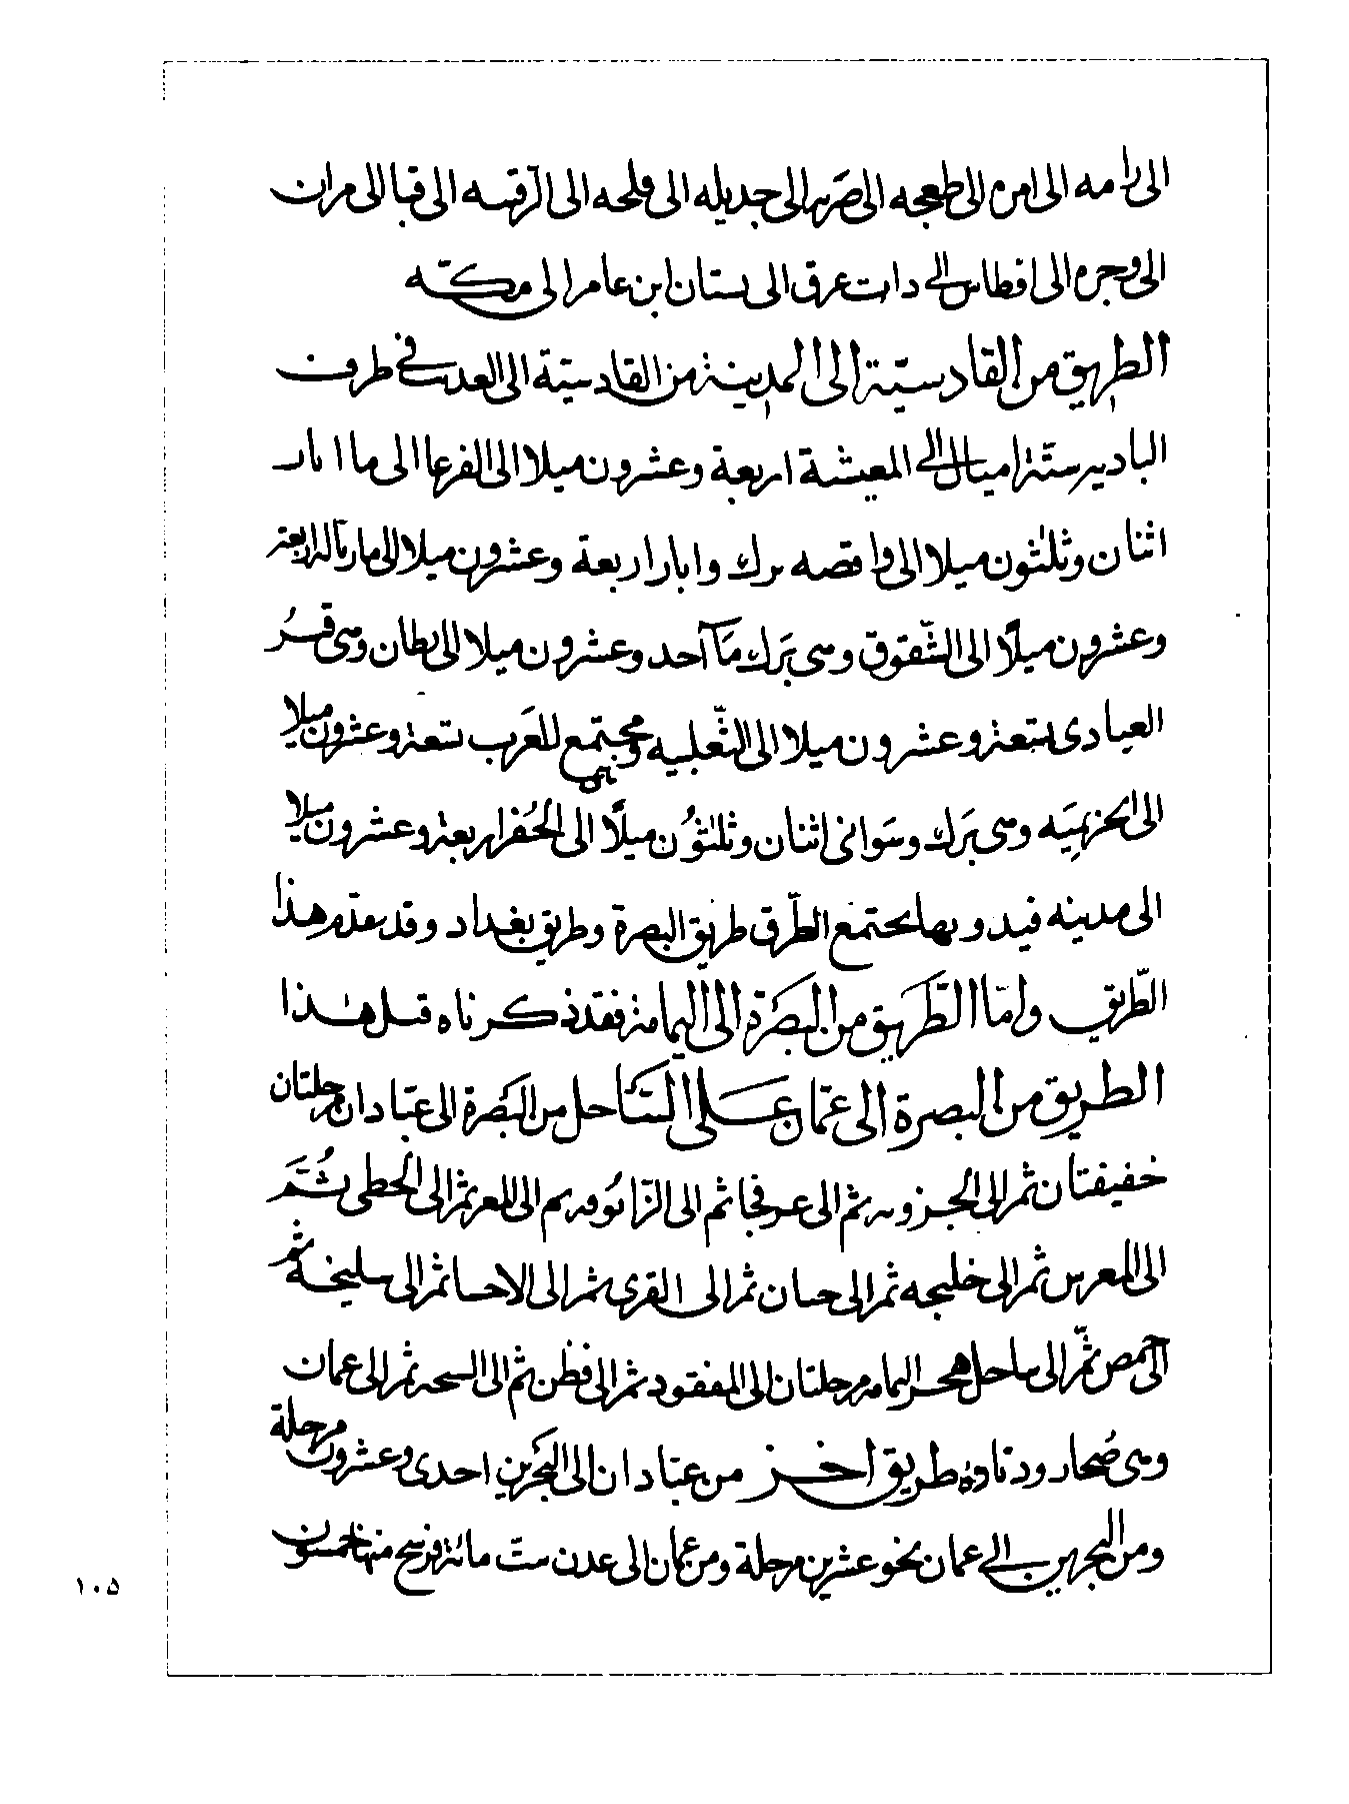 الى رامه الى امره الى طعجه الى ضريه الى جديله الى فلحه الى الرقيبه الى قبا الى مران
الى وجره الى اوطاس الى ذات عرق الى بستان ابن عامر الى مكّه
الطريق من القادسيّة الى المدينة من القادسيّة الى العذيب فى طرف
الباديه ستّة اميال الى المغيشة اربعة وعشرون ميلا الى القرعا الى ما ابار
اثنان وثلثون ميلا الى واقصه برك وابار اربعة وعشرون ميلا الى اربعة
وعشرون ميلًا الى الشّقوق وهى بَرك مَآ احد وعشرون ميلا الى بطان وهى قبرُ
العبادى تسعة وعشرون ميلا الى الثّعلبيه وهى مجتمع للعَرب تسعة وعشرون ميلا
الى الخزيميَه وهى بَرك وسَوانى اثنان وثلثوُن ميلًا الى الحُفر اربعة وعشرون ميلا
الى مدينه فيد وبها يجتمع الطّرق طريق البصرة وطريق بغداد وقد تقدم هذا
الطّريق وامّا الطَّرَيق من البصَرَة الى اليمامة فقد ذكرناه قبل هذا
الطريق من البصرة الى عمّان عَلى السَاحل من البَصرة الى عبّادان مرحلتان
خفيفتان ثم الى الجزونه ثم الى عرفجا ثم الى الزّابُوقه ثم الى المعر ثم الى الخطى ثُمَّ
الى المعرس ثم الى خليجه ثم الى حسان ثم الى القرى ثم الى الاحسا ثم الى سليخه ثم
الى حمص ثمّ الى ساحل هجر اليمامه مرحلتان الى المفقود ثم الى قطن ثم الى السحه ثم الى عمان
وهى صُحار ودباوه طريق اخر من عبّادان الى البَحرين احدى وعشرون مرحلة
ومن البحرين الى عمان نحو عشرين مرحلة ومن عمان الى عدن ستّ مائة فرسخ منها خمسون
١٠٥